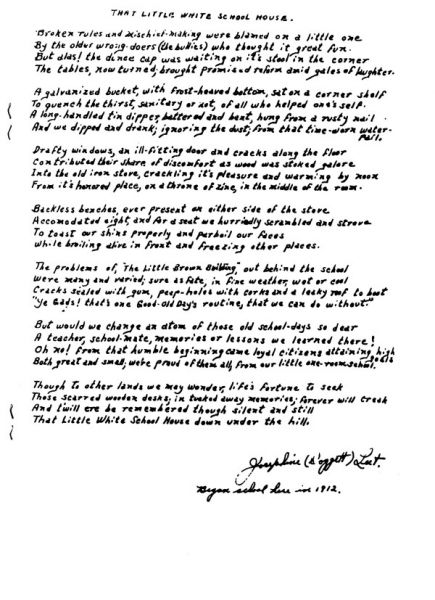 THAT LITTLE WHITE SCHOOL HOUSE.
Broken rules and mischief-making were blamed on a little one
By the older wrong-doers (the bullies) who thought it great fun.
But alas! the dunce cap was waiting on it's stool in the corner
The tables, now turned, brought promised reform amid gales of laughter.
A galvanized bucket, with frost-heaved bottom, sat on a corner shelf
To quench the thirst, sanitary or not, of all who helped one's self.
A long-handled tin dipper, battered and bent, hung from a rusty nail
And we dipped and drank; ignoring the dust, from that time-worn water-pail.
Drafty windows, an ill-fitting door and cracks along the floor
Contributed their share of discomfort as wood was stoked galore
Into the old iron stove, crackling it's pleasure and warming by noon
From it's honored place, on a throne of zinc, in the middle of the room.
Backless benches, ever present on either side of the stove
Accomodated eight, and for a seat we hurriedly scrambled and strove
To toast our shins properly and parboil our faces
While broiling alive in front and freezing other places.
The problems of, "The Little Brown Building," out behind the school
Were many and varied; sure as fate, in fine weather, wet or cool
Cracks sealed with gum, peep-holes with corks and a leaky roof to boot
"Ye Gads! that's one Good-Old-Day's routine, that we can do without."
But would we change an atom of those old school-days so dear
A teacher, school-mate, memories or lessons we learned there!
Oh no! from that humble beginning came loyal citizens attaining high goals
Both great and small, we're proud of them all, from our little one-room school.
Though to other lands we may wonder, life's fortune to seek
Those scarred wooden desks, in tucked away memories, forever will creak
And t'will ere be remembered though silent and still
That Little White School House down under the hill.
Josephine
Began school here in 1912.